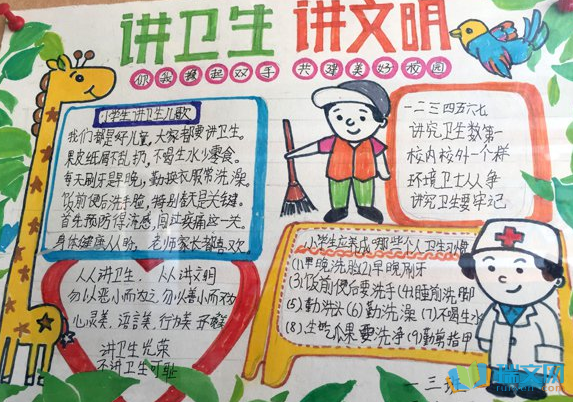 讲卫生 讲文明
你我携起双手 共建美好校园
小学生讲卫生儿歌
我们都是好儿童,大家都要讲卫生。
果皮纸屑不乱扔,不喝生水少零食。
每天刷牙是早晚,勤换衣服常洗澡。
饭前便后洗手脸,特别春天是关键。
首先预防得流感,闯过疾病这一关。
身体健康人人盼,老师家长都喜欢。
一二三四五六七
讲究卫生数第一
校内校外一个样
环境卫士人人争
讲究卫生要牢记
人人讲卫生,人人讲文明
勿以恶小而为之,勿以善小而不为
心灵美,语言美,行为美
讲卫生光荣
不讲卫生可耻
小学生应养成哪些个人卫生习惯
(1)早晚洗脸(2)早晚刷牙
(3)饭前便后要洗手(4)睡前洗脚
(5)勤洗头(6)勤洗澡(7)不喝生水
(8)生吃瓜果要洗净(9)勤剪指甲
一三班
瑞文网